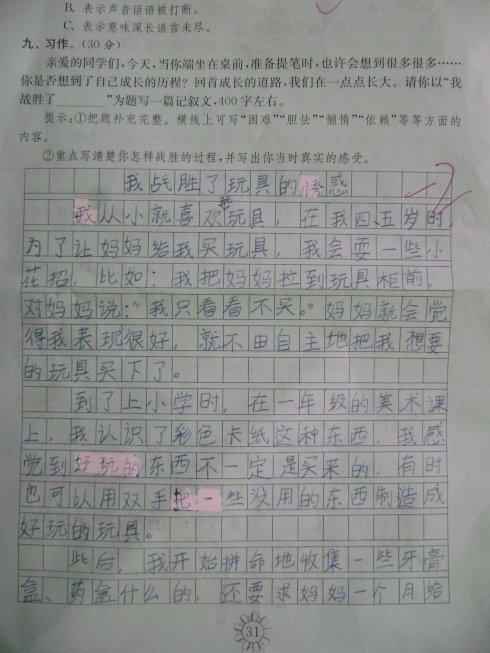 B. 表示声音话语被打断。
C. 表示意味深长语言未尽。
九、习作。(30分)
亲爱的同学们,今天,当你端坐在桌前,准备提笔时,也许会想到很多很多……
你是否想到了自己成长的历程? 回首成长的道路,我们在一点点长大。请你以“我
战胜了______”为题写一篇记叙文,400字左右。
提示:①把题补充完整。横线上可写“困难”“胆怯”“懒惰”“依赖”等等方面的
内容。
②重点写清楚你怎样战胜的过程,并写出你当时真实的感受。
我战胜了玩具的诱惑
我从小就喜欢玩具，在我四、五岁时，
为了让妈妈给我买玩具，我会耍一些小
花招，比如：我把妈妈拉到玩具柜前，
对妈妈说：“我只看看不买。”妈妈就会觉
得我表现很好，就不由自主地把我想要
的玩具买下了。
到了上小学时，在一年级的美术课
上，我认识了彩色卡纸这种东西，我感
觉到好玩的东西不一定是买来的，有时
也可以用双手把一些没用的东西制造成
好玩的玩具。
此后，我开始拼命地收集一些牙膏
盒、药盒什么的，还要求妈妈一个月给
31